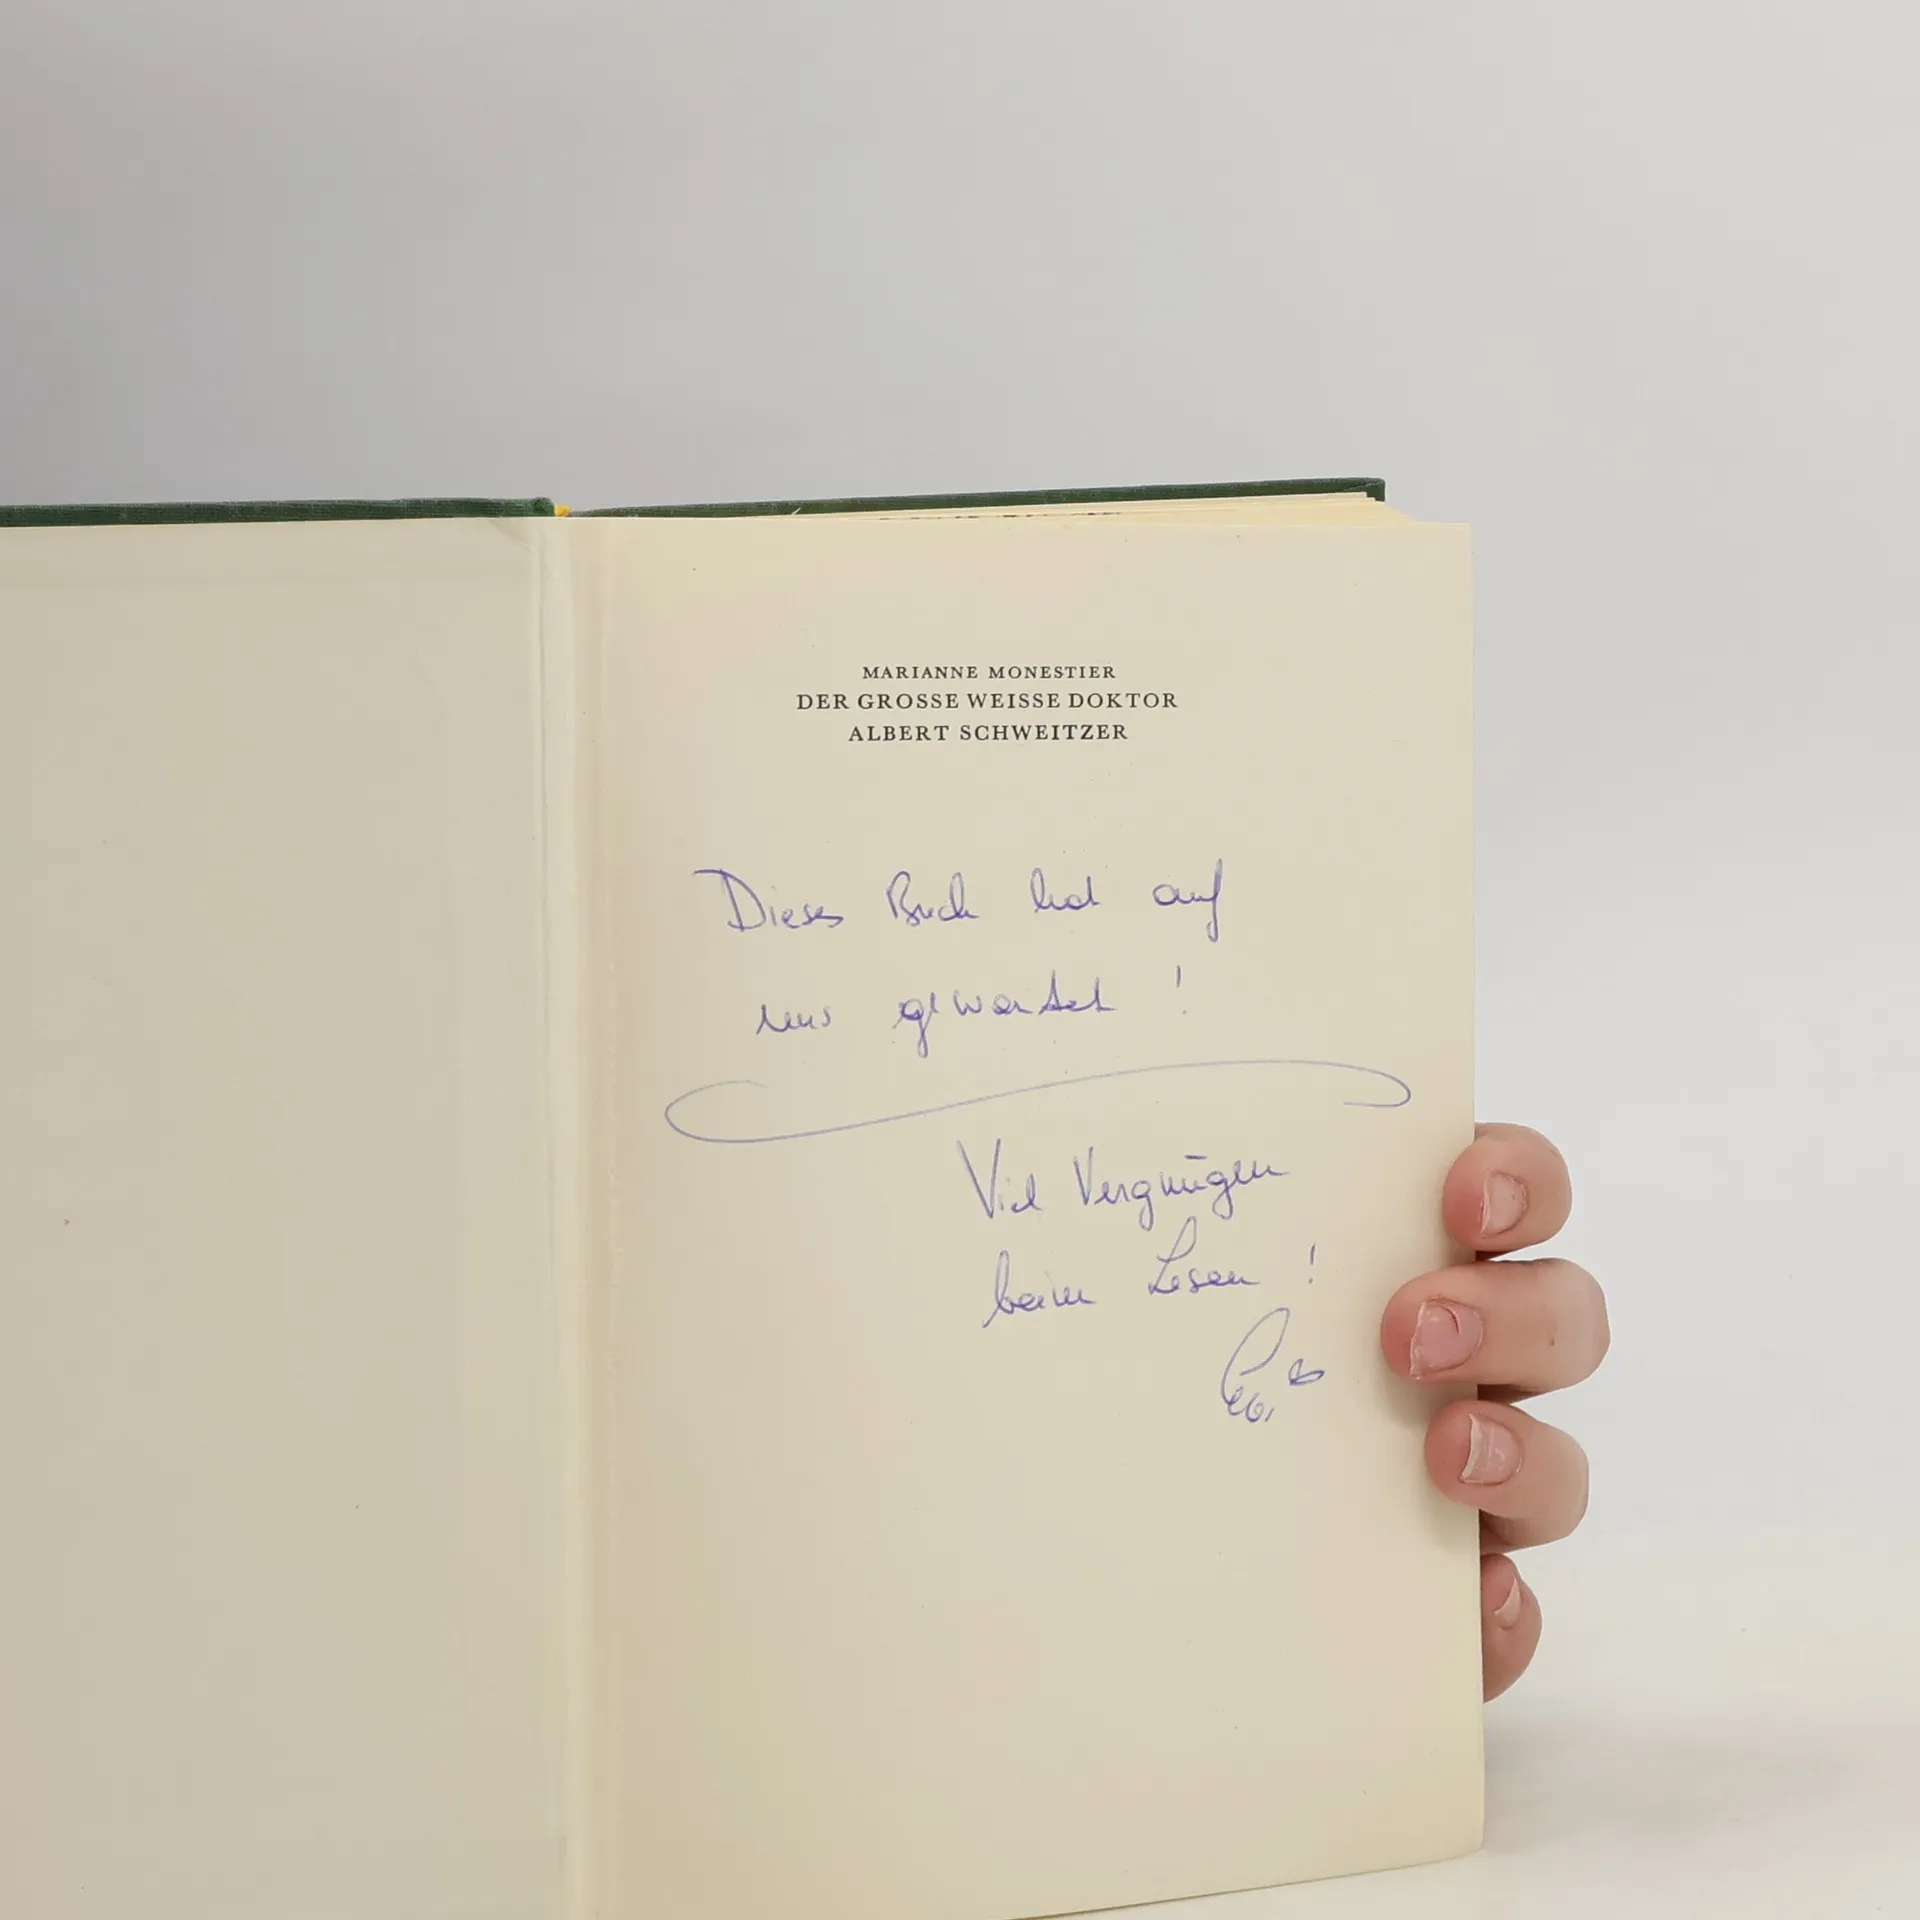 MARIANNE MONESTIER
DER GROSSE WEISSE DOKTOR
ALBERT SCHWEITZER
Dieses Buch hat auf
uns gewartet !
Viel Vergnügen
beim Lesen !